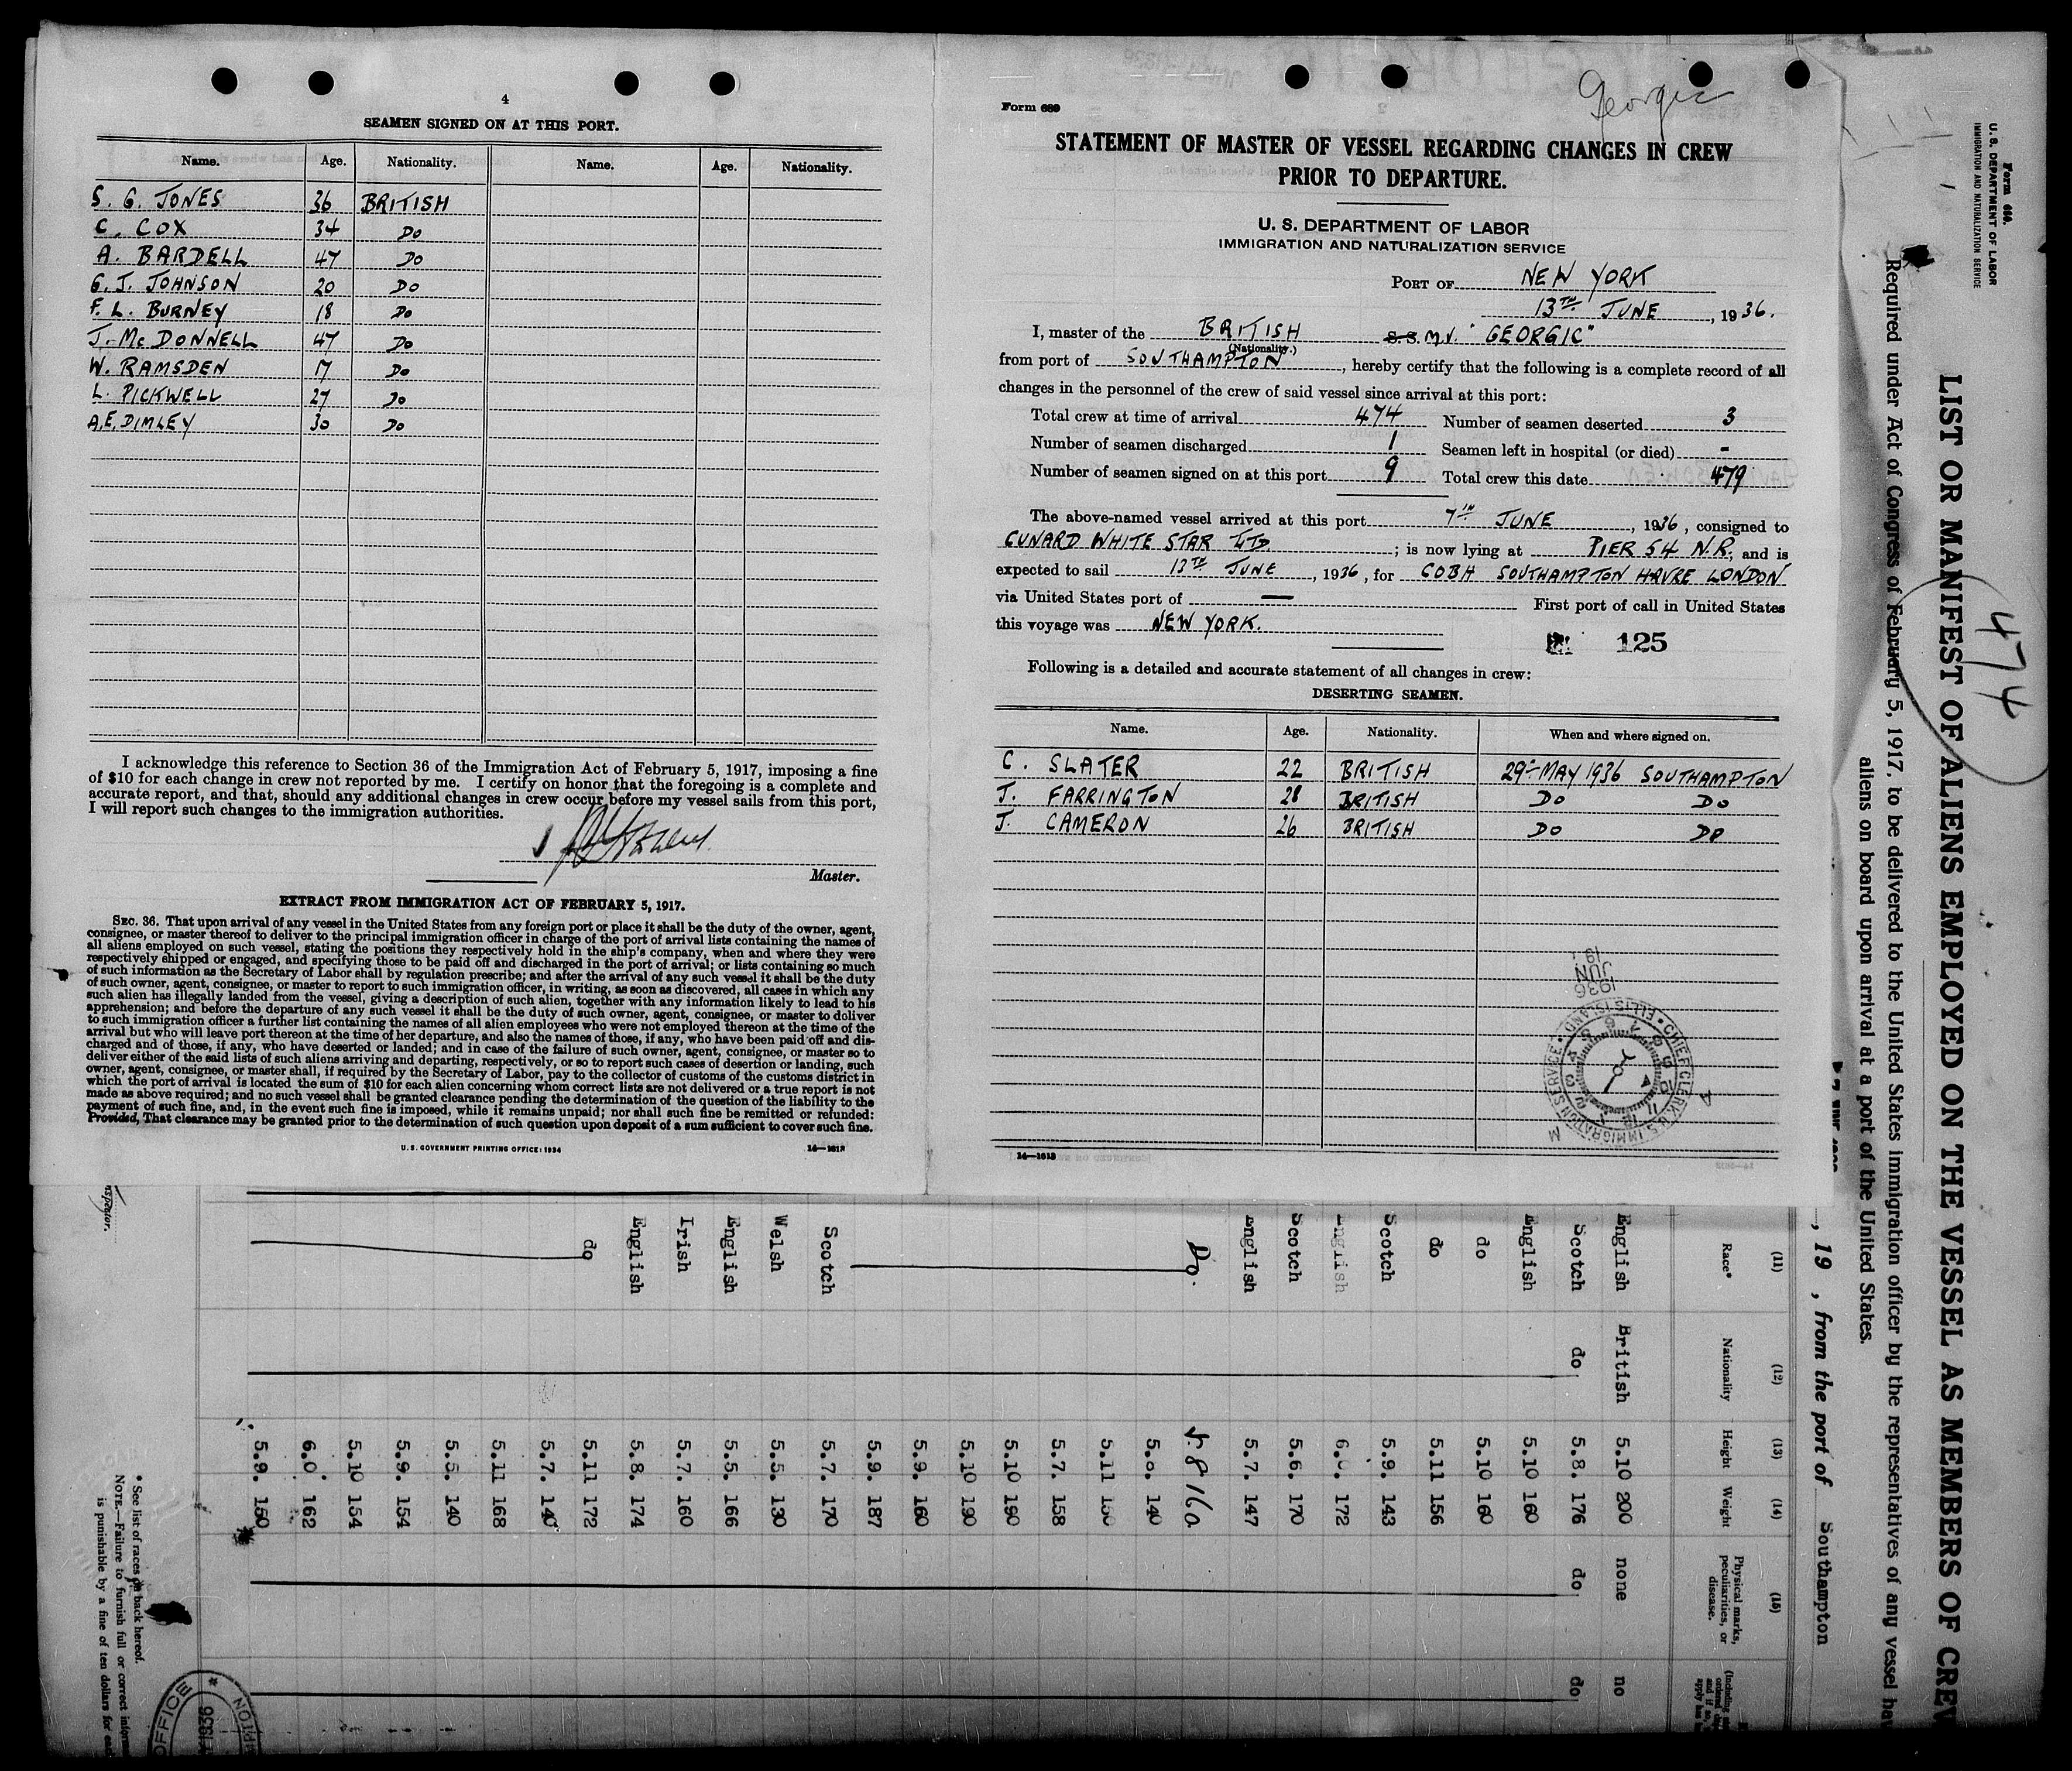 4
SEAMEN SIGNED ON AT THIS PORT.
Name. Age. Nationality. Name. Age. Nationality.
S. G. JONES 36 BRITISH
C. COX 34 DO
A. BARDELL 47 DO
G. J. JOHNSON 20 DO
F. L. BURNEY 18 DO
J. McDONNELL 47 DO
W. RAMSDEN 17 DO
L. PICKWELL 27 DO
A.E. DIMLEY 30 DO
I acknowledge this reference to Section 36 of the Immigration Act of February 5, 1917, imposing a fine
of $10 for each change in crew not reported by me. I certify on honor that the foregoing is a complete and
accurate report, and that, should any additional changes in crew occur before my vessel sails from this port,
I will report such changes to the immigration authorities.
Master.
EXTRACT FROM IMMIGRATION ACT OF FEBRUARY 5, 1917.
SEC. 36. That upon arrival of any vessel in the United States from any foreign port or place it shall be the duty of the owner, agent,
consignee, or master thereof to deliver to the principal immigration officer in charge of the port of arrival lists containing the names of
all aliens employed on such vessel, stating the positions they respectively hold in the ship's company, when and where they were
respectively shipped or engaged, and specifying those to be paid off and discharged in the port of arrival; or lists containing so much
of such information as the Secretary of Labor shall by regulation prescribe; and after the arrival of any such vessel it shall be the duty
of such owner, agent, consignee, or master to report to such immigration officer, in writing, as soon as discovered, all cases in which any
such alien has illegally landed from the vessel, giving a description of such alien, together with any information likely to lead to his
apprehension; and before the departure of any such vessel it shall be the duty of such owner, agent, consignee, or master to deliver
to such immigration officer a further list containing the names of all alien employees who were not employed thereon at the time of the
arrival but who will leave port thereon at the time of her departure, and also the names of those, if any, who have been paid off and dis-
charged and of those, if any, who have deserted or landed; and in case of the failure of such owner, agent, consignee, or master so to
deliver either of the said lists of such aliens arriving and departing, respectively, or so to report such cases of desertion or landing, such
owner, agent, consignee, or master shall, if required by the Secretary of Labor, pay to the collector of customs of the customs district in
which the port of arrival is located the sum of $10 for each alien concerning whom correct lists are not delivered or a true report is not
made as above required; and no such vessel shall be granted clearance pending the determination of the question of the liability to the
payment of such fine, and, in the event such fine is imposed, while it remains unpaid; nor shall such fine be remitted or refunded:
Provided, That clearance may be granted prior to the determination of such question upon deposit of a sum sufficient to cover such fine.
U.S. GOVERNMENT PRINTING OFFICE: 1934 14—1613
Georgic
Form 689
STATEMENT OF MASTER OF VESSEL REGARDING CHANGES IN CREW
PRIOR TO DEPARTURE.
U. S. DEPARTMENT OF LABOR
IMMIGRATION AND NATURALIZATION SERVICE
PORT OF NEW YORK
13TH JUNE, 1936.
I, master of the BRITISH S.S. M.V. "GEORGIC"
(Nationality.)
from port of SOUTHAMPTON, hereby certify that the following is a complete record of all
changes in the personnel of the crew of said vessel since arrival at this port:
Total crew at time of arrival 474 Number of seamen deserted 3
Number of seamen discharged 1 Seamen left in hospital (or died) -
Number of seamen signed on at this port 9 Total crew this date 479
The above-named vessel arrived at this port 7TH JUNE, 1936, consigned to
CUNARD WHITE STAR LTD.; is now lying at PIER 54 N.R., and is
expected to sail 13TH JUNE, 1936, for COBH SOUTHAMPTON HAVRE LONDON
via United States port of — First port of call in United States
this voyage was NEW YORK.
125
Following is a detailed and accurate statement of all changes in crew:
DESERTING SEAMEN.
Name. Age. Nationality. When and where signed on.
C. SLATER 22 BRITISH 29TH MAY 1936 SOUTHAMPTON
J. FARRINGTON 28 BRITISH DO DO
J. CAMERON 26 BRITISH DO DO
1936
JUN
19
CHIEF CLERK U.S. IMMIGRATION SERVICE • ELLIS ISLAND •
14—1613
Form 680.
U. S. DEPARTMENT OF LABOR
IMMIGRATION AND NATURALIZATION SERVICE
474
LIST OR MANIFEST OF ALIENS EMPLOYED ON THE VESSEL AS MEMBERS OF CREW
Required under Act of Congress of February 5, 1917, to be delivered to the United States immigration officer by the representatives of any vessel
aliens on board upon arrival at a port of the United States.
, 19 , from the port of Southampton
(11) (12) (13) (14) (15)
Race* Nationality Height Weight Physical marks, peculiarities, or disease.
English British 5.10 200 none no
Scotch do 5.8. 176 do do
English 5.10 160
do 5.10 160
do 5.11 156
Scotch 5.9. 143
English 172
Scotch 5.6. 170
English 5.7. 147
Do. 5.8 160
140
5.11
5.7. 158
5.10 190
5.10 190
5.9. 160
5.9. 187
Scotch 5.7. 170
Welsh 5.5. 130
English 5.5. 166
Irish 5.7. 160
English 5.8. 174
do 5.11 172
5.7. 140
5.11 168
5.5. 140
5.9. 154
5.10 154
6.0. 162
5.9. 150
* See list of races on back hereof.
NOTE.—Failure to furnish full or correct
is punishable by a fine of ten dollars for
OFFICE
1936